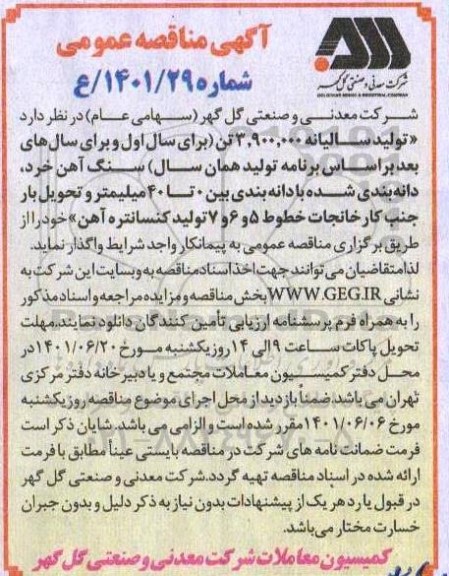 آگهی مناقصه عمومی
شماره ۱۴۰۱/۲۹/ع
شرکت معدنی و صنعتی گل گهر
GOL-GOHAR MINING & INDUSTRIAL COMPANY
شرکت معدنـی و صنعتی گل گهر (سـهامی عـام) در نظر دارد
«تولید سـالیانه ۳,۹۰۰,۰۰۰ تن (برای سال اول و برای سال‌های
بعد بر اساس برنامه تولید همان سال) سـنگ آهن خرد،
دانه‌بندی شـده با دانه‌بندی بین ۰ تـا ۴۰ میلیمتر و تحویل بار
جنب کارخانجات خطوط ۵ و ۶ و ۷ تولید کنسانتره آهن» خود را از
طریق برگزاری مناقصه عمومی به پیمانکار واجد شرایط واگذار نماید.
لذا متقاضیان می‌توانند جهت اخذ اسناد مناقصه به وبسایت این شرکت به
نشانی WWW.GEG.IR بخش مناقصه و مزایده مراجعه و اسناد مذکور
را به همراه فرم پرسشنامه ارزیابی تأمین کنندگان دانلود نمایند. مهلت
تحویل پاکات سـاعت ۹ الی ۱۴ روز یکشنبه مـورخ ۱۴۰۱/۰۶/۲۰ در
محل دفتر کمیسـیون معـاملات مجتمع و یا دبیرخانه دفتر مرکزی
تهران می باشد. ضمناً بازدید از محل اجرای موضوع مناقصه روز یکشنبه
مورخ ۱۴۰۱/۰۶/۰۶ مقرر شده است و الزامی می باشد. شایان ذکر است
فرمت ضمانت نامه های شرکت در مناقصه بایستی عیناً مطابق با فرمت
ارائه شده در اسناد مناقصه تهیه گردد. شرکت معدنی و صنعتی گل گهر
در قبول یا رد هر یک از پیشنهادات بدون نیاز به ذکر دلیل و بدون جبران
خسارت مختار می‌باشد.
کمیسیون معاملات شرکت معدنی و صنعتی گل گهر